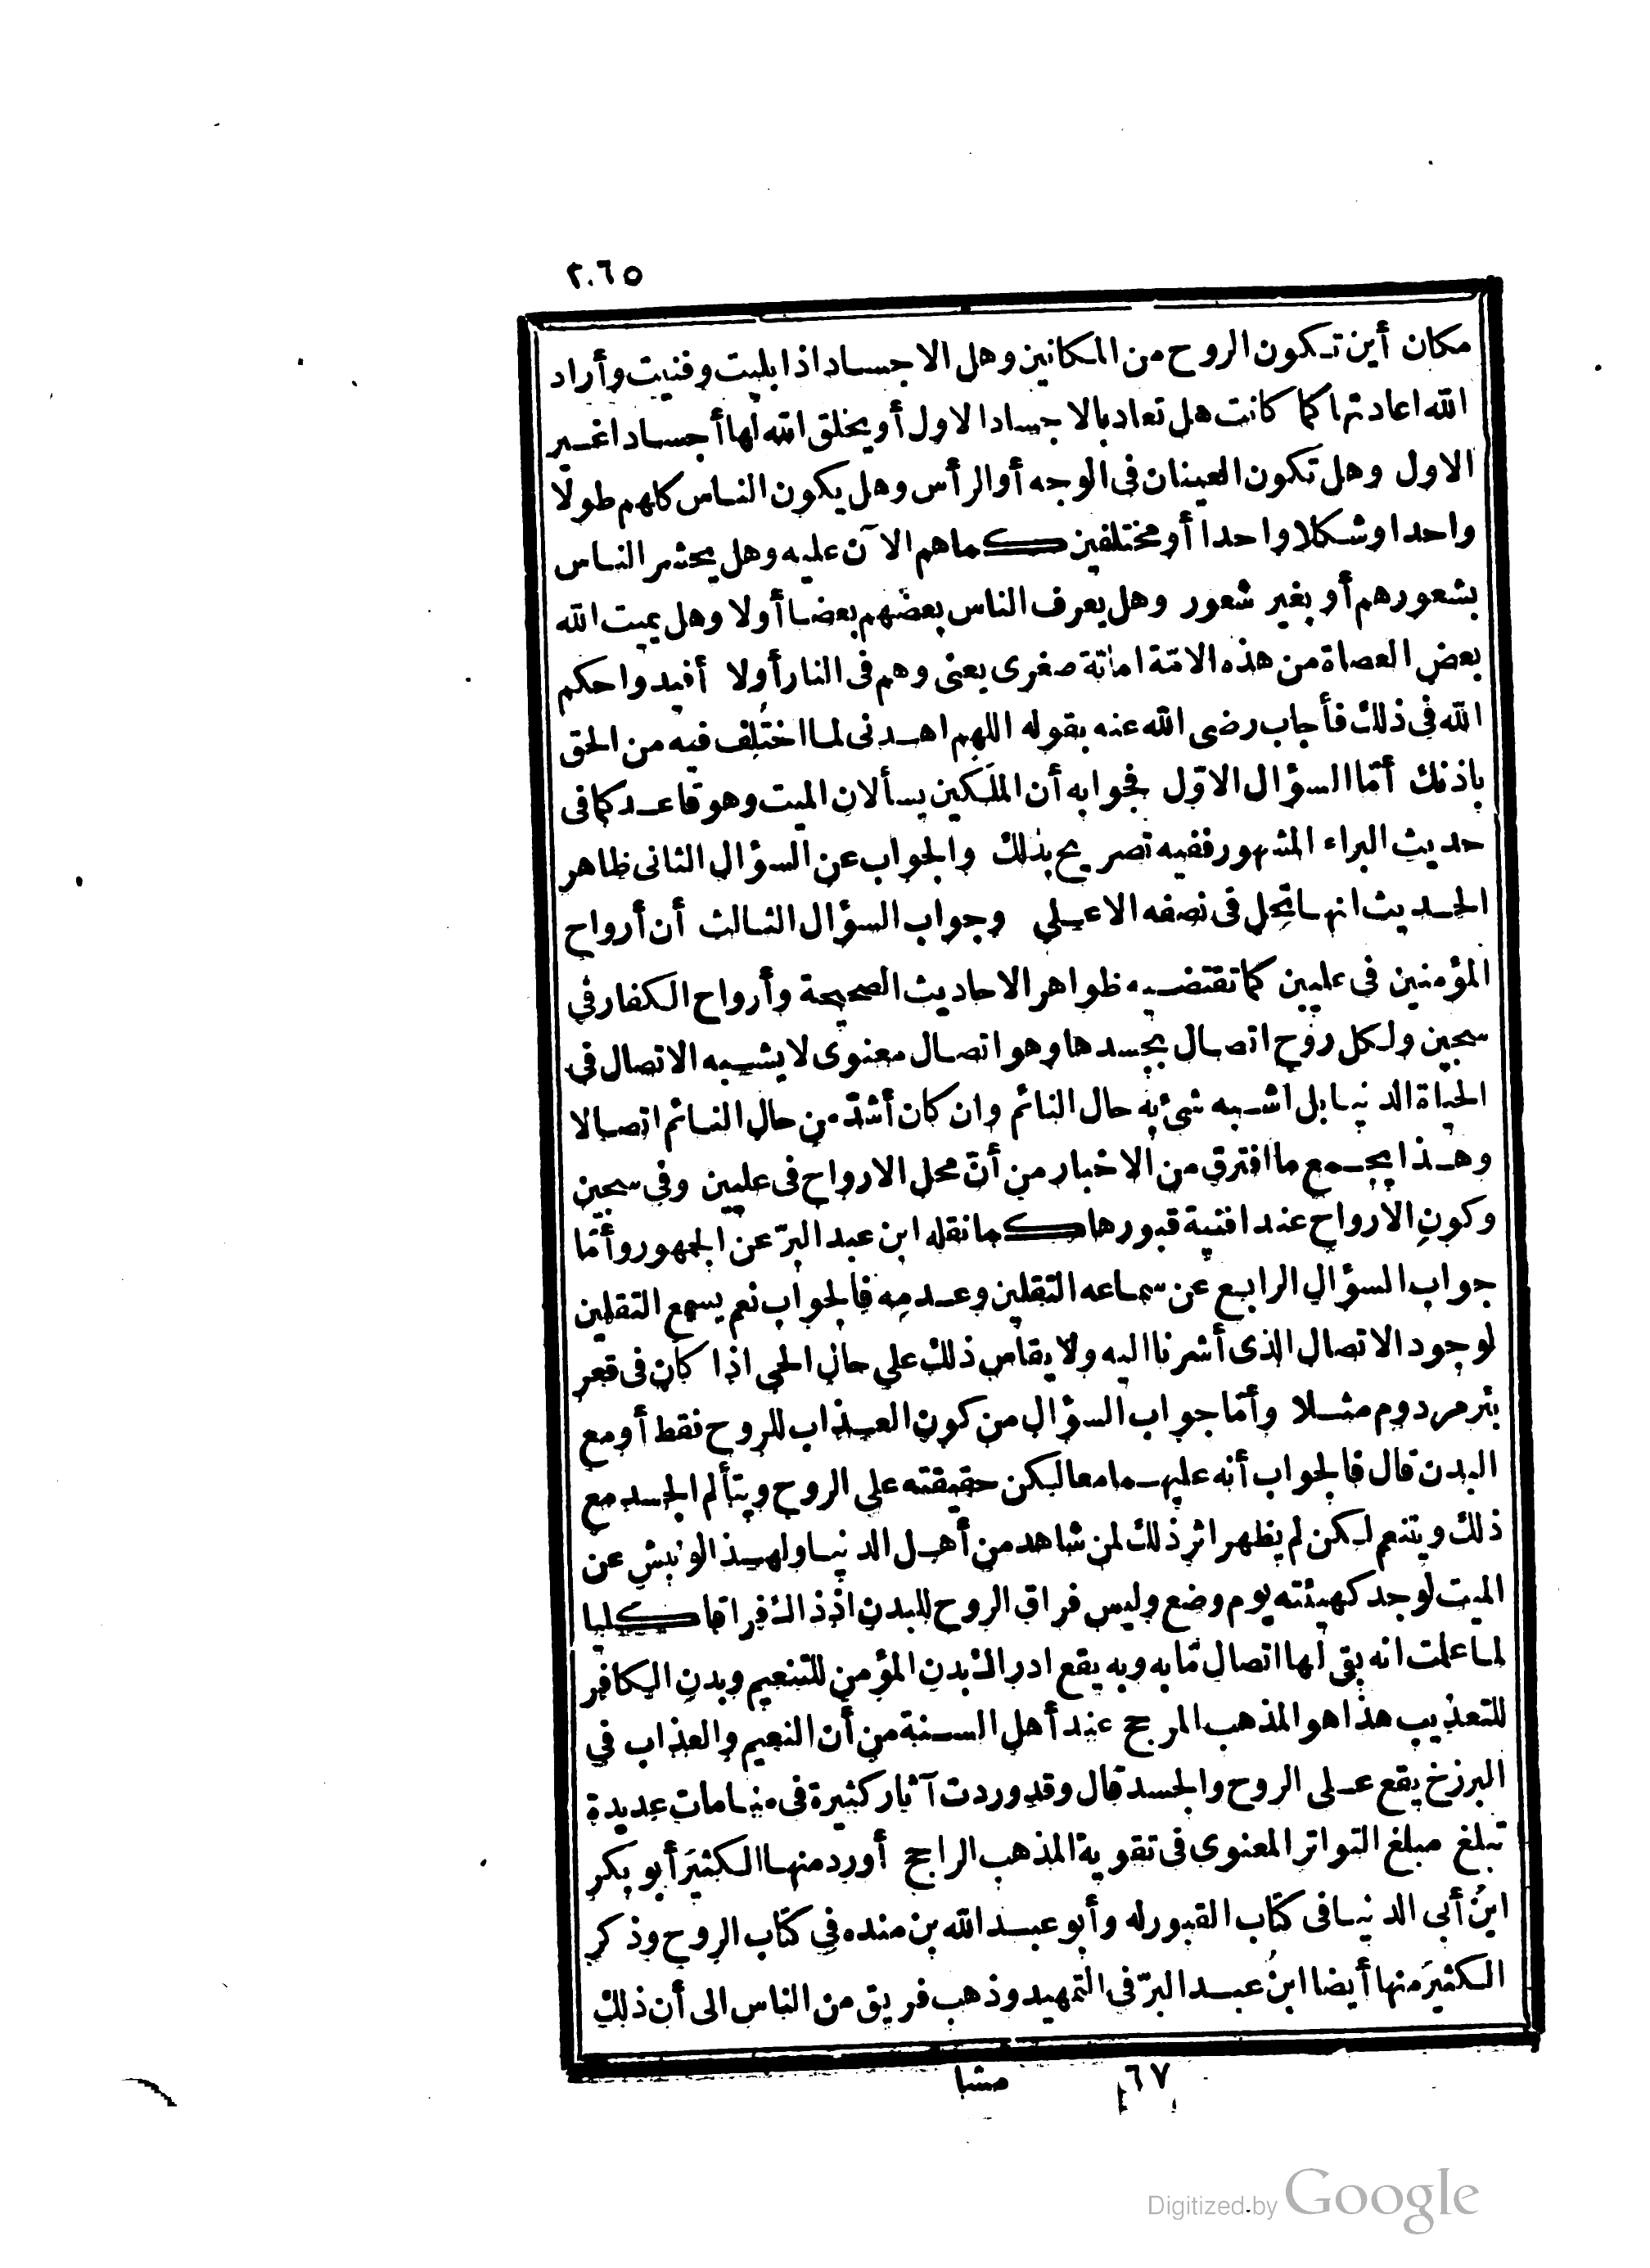 ٢٠٦٥
مكان أين تكون الروح من المكانين وهل الاجساد اذا بليت وفنيت وأراد
الله اعادتها كما كانت هل تعاد بالاجساد الاول أو يخلق الله لها أجسادا غير
الاول وهل تكون العينان فى الوجه أو الرأس وهل يكون الناس كلهم طولا
واحدا وشكلا واحدا أو مختلفين كما هم الآن عليه وهل يحشر الناس
بشعورهم أو بغير شعور وهل يعرف الناس بعضهم بعضا أولا وهل يميت الله
بعض العصاة من هذه الامّة اماتة صغرى يعنى وهم فى النار أولا أفيدوا حكم
الله فى ذلك فأجاب رضى الله عنه بقوله اللهم اهدنى لما اختُلِف فيه من الحق
باذنك أمّا السؤال الاوّل فجوابه أن الملَكين يسألان الميت وهو قاعد كما فى
حديث البراء المشهور ففيه تصريح بذلك والجواب عن السؤال الثانى ظاهر
الحديث انها تحل فى نصفه الاعلى وجواب السؤال الثالث أن أرواح
المؤمنين فى عليين كما تقتضيه ظواهر الاحاديث الصحيحة وأرواح الكفار فى
سجين ولكل روح اتصال بجسدها وهو اتصال معنوى لا يشبه الاتصال فى
الحياة الدنيا بل اشبه شئ به حال النائم وان كان أشدّ من حال النائم اتصالا
وهذا يجمع ما افترق من الاخبار من أنّ محل الارواح فى عليين وفى سجين
وكونِ الارواح عند افنية قبورها كما نقله ابن عبد البرّ عن الجمهور وأمّا
جواب السؤال الرابع عن سماعه التقلين وعدمه فالجواب نعم يسمع التقلين
لوجود الاتصال الذى أشرنا اليه ولا يقاس ذلك على حال الحى اذا كان فى قعر
بئر مردوم مثلا وأمّا جواب السؤال من كون العذاب للروح فقط أو مع
البدن قال فالجواب أنه عليهما معا لكن حقيقته على الروح ويتألم الجسد مع
ذلك ويتنعم لكن لم يظهر اثر ذلك لمن شاهد من أهل الدنيا ولهذا لو نبش عن
الميت لوجد كهيئته يوم وضع وليس فراق الروح للبدن اذ ذاك فراقا كليا
لما علمت انه بقى لها اتصال مّا به وبه يقع ادراك بدن المؤمن للتنعيم وبدن الكافر
للتعذيب هذا هو المذهب المرجح عند أهل السنة من أن النعيم والعذاب فى
البرزخ يقع على الروح والجسد قال وقد وردت آثار كثيرة فى منامات عديدة
تبلغ مبلغ التواتر المعنوى فى تقوية المذهب الراجح أورد منها الكثيرَ أبو بكر
ابنُ أبى الدنيا فى كتاب القبور له وأبو عبد الله بن منده فى كتاب الروح وذكر
الكثيرَ منها أيضا ابنُ عبد البرّ فى التمهيد وذهب فريق من الناس الى أن ذلك
٦٧ مشا
Digitized by Google